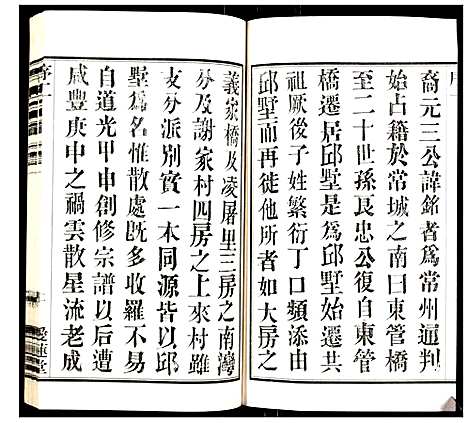 裔元三公諱銘者為常州通判
始占籍於常城之南曰東管橋
至二十世孫良忠公復自東管
橋遷居邱墅是為邱墅始遷共
祖厥後子姓繁衍丁口頻添由
邱墅而再徙他所者如大房之
義家橋及凌屠里三房之南灣
分及謝家村四房之上來村雖
支分派別實一本同源皆以邱
墅為名惟散處既多收羅不易
自道光甲申創修宗譜以后遭
咸豐庚申之禍雲散星流老成
序二
愛蓮堂